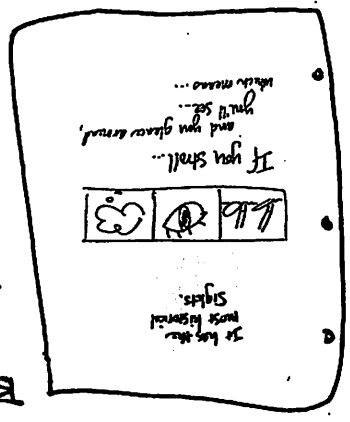 It has the
most historial
Sights.
If you stroll...
and you glance around,
you'll see...
which means ...